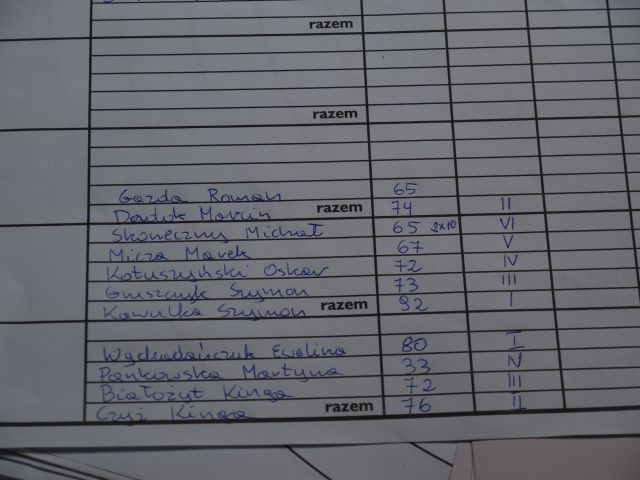 razem
razem
Gazda Roman 65
Marcin razem 74 II
Skoneczny Michał 65 2x10 VI
Micza Marek 67 V
Kotuszyński Oskar 72 IV
Szymon 73 III
Kawulka Szymon razem 92 I
Ewelina 80 I
Pańkowska Martyna 33 IV
Białożyt Kinga 72 III
Czyż Kinga razem 76 II